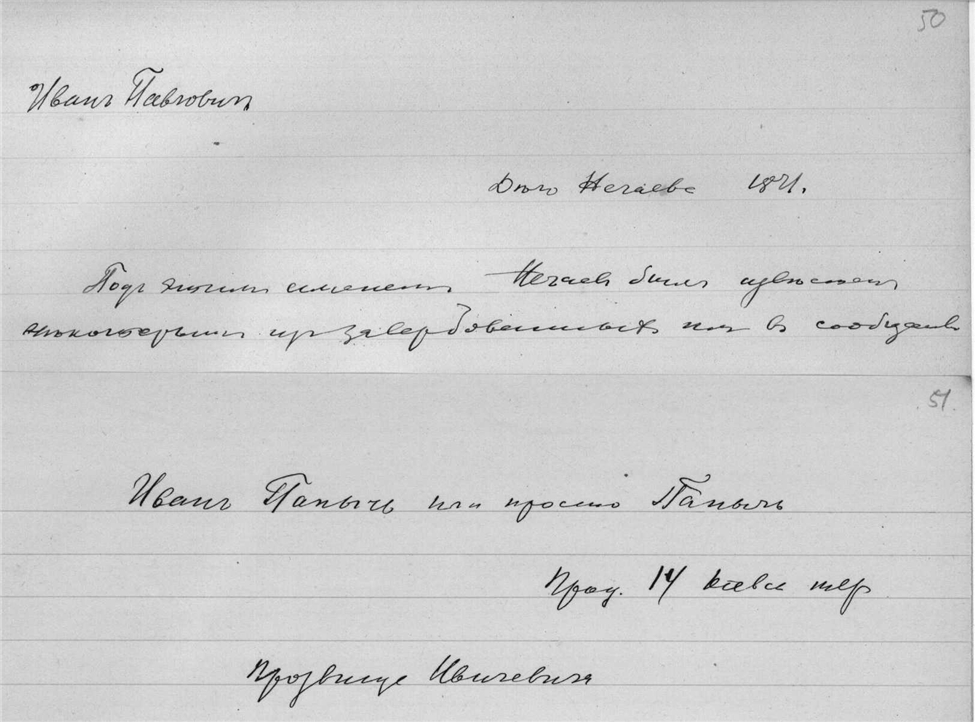 50
Иванъ Павловичъ
Дѣло Нечаева 1871.
Подъ этимъ именемъ Нечаевъ былъ извѣстенъ
нѣкоторымъ изъ завербованныхъ имъ въ сообщество
51.
Иванъ Папычъ или просто Папычъ
Проц. 14 Кіевск тер
Прозвище Ивичевича